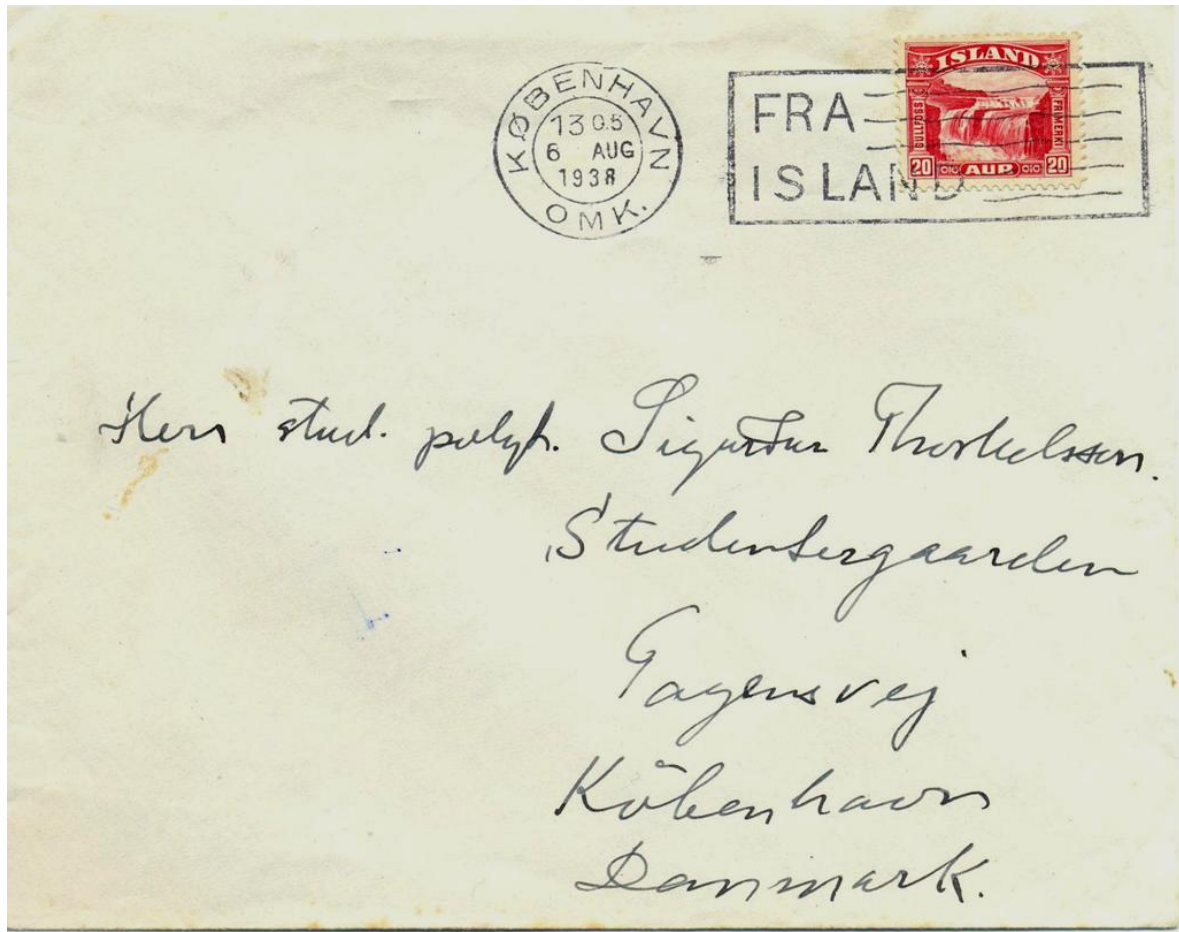 KØBENHAVN
13 05
6 AUG
1938
OMK.
FRA
ISLAND
ISLAND
GULLFOSS
FRIMERKI
20 AUR 20
Herr stud. polyt. Sigurður Thorkelsson.
Studentergaarden
Tagensvej
Köbenhavn
Danmark.